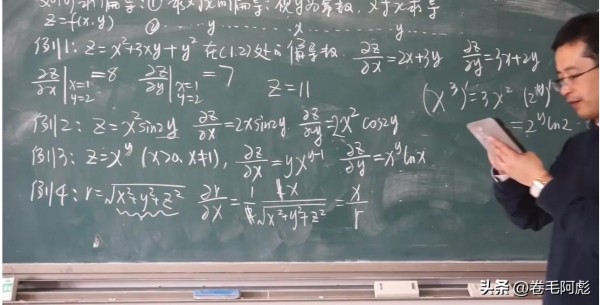 z=f(x,y) ② y x y
例1: z=x²+3xy+y² 在(1,2)处的偏导数 ∂z/∂x=2x+3y ∂z/∂y=3x+2y
∂z/∂x|x=1 y=2 =8 ∂z/∂y|x=1 y=2 =7 z=11
(x³)'=3x² (2^y)'
=2^y ln2
例2: z=x²sin2y ∂z/∂x=2xsin2y ∂z/∂y=2x²cos2y
例3: z=x^y (x>0,x≠1), ∂z/∂x=yx^(y-1) ∂z/∂y=x^y lnx
例4: r=√(x²+y²+z²) ∂r/∂x=1/2 2x/√(x²+y²+z²)=x/r
头条 @卷毛阿彪